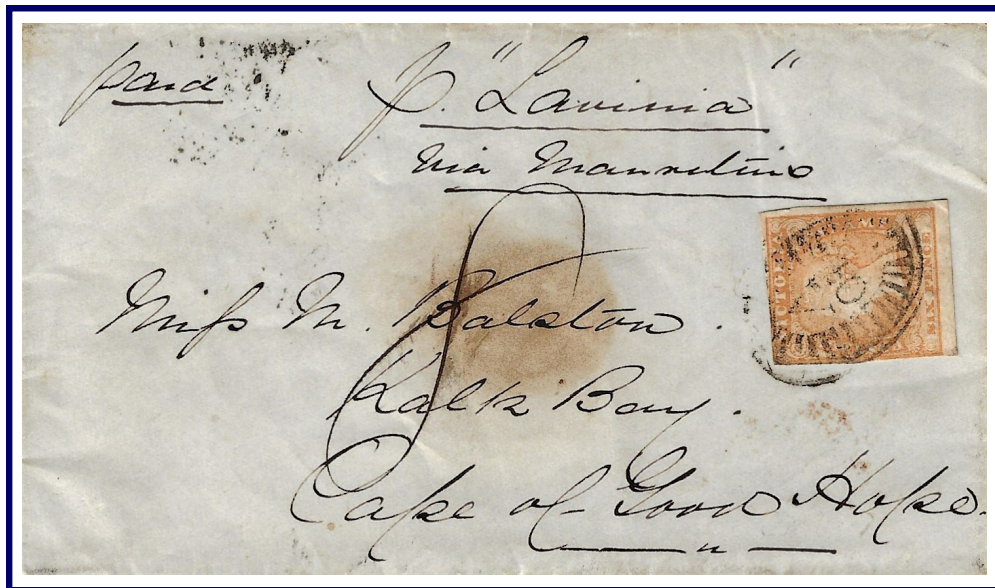 paid
p. "Lavinia"
via Mauritius
8
Miss M. Ralston.
Kalk Bay.
Cape of Good Hope.
VICTORIA
SIX PENCE